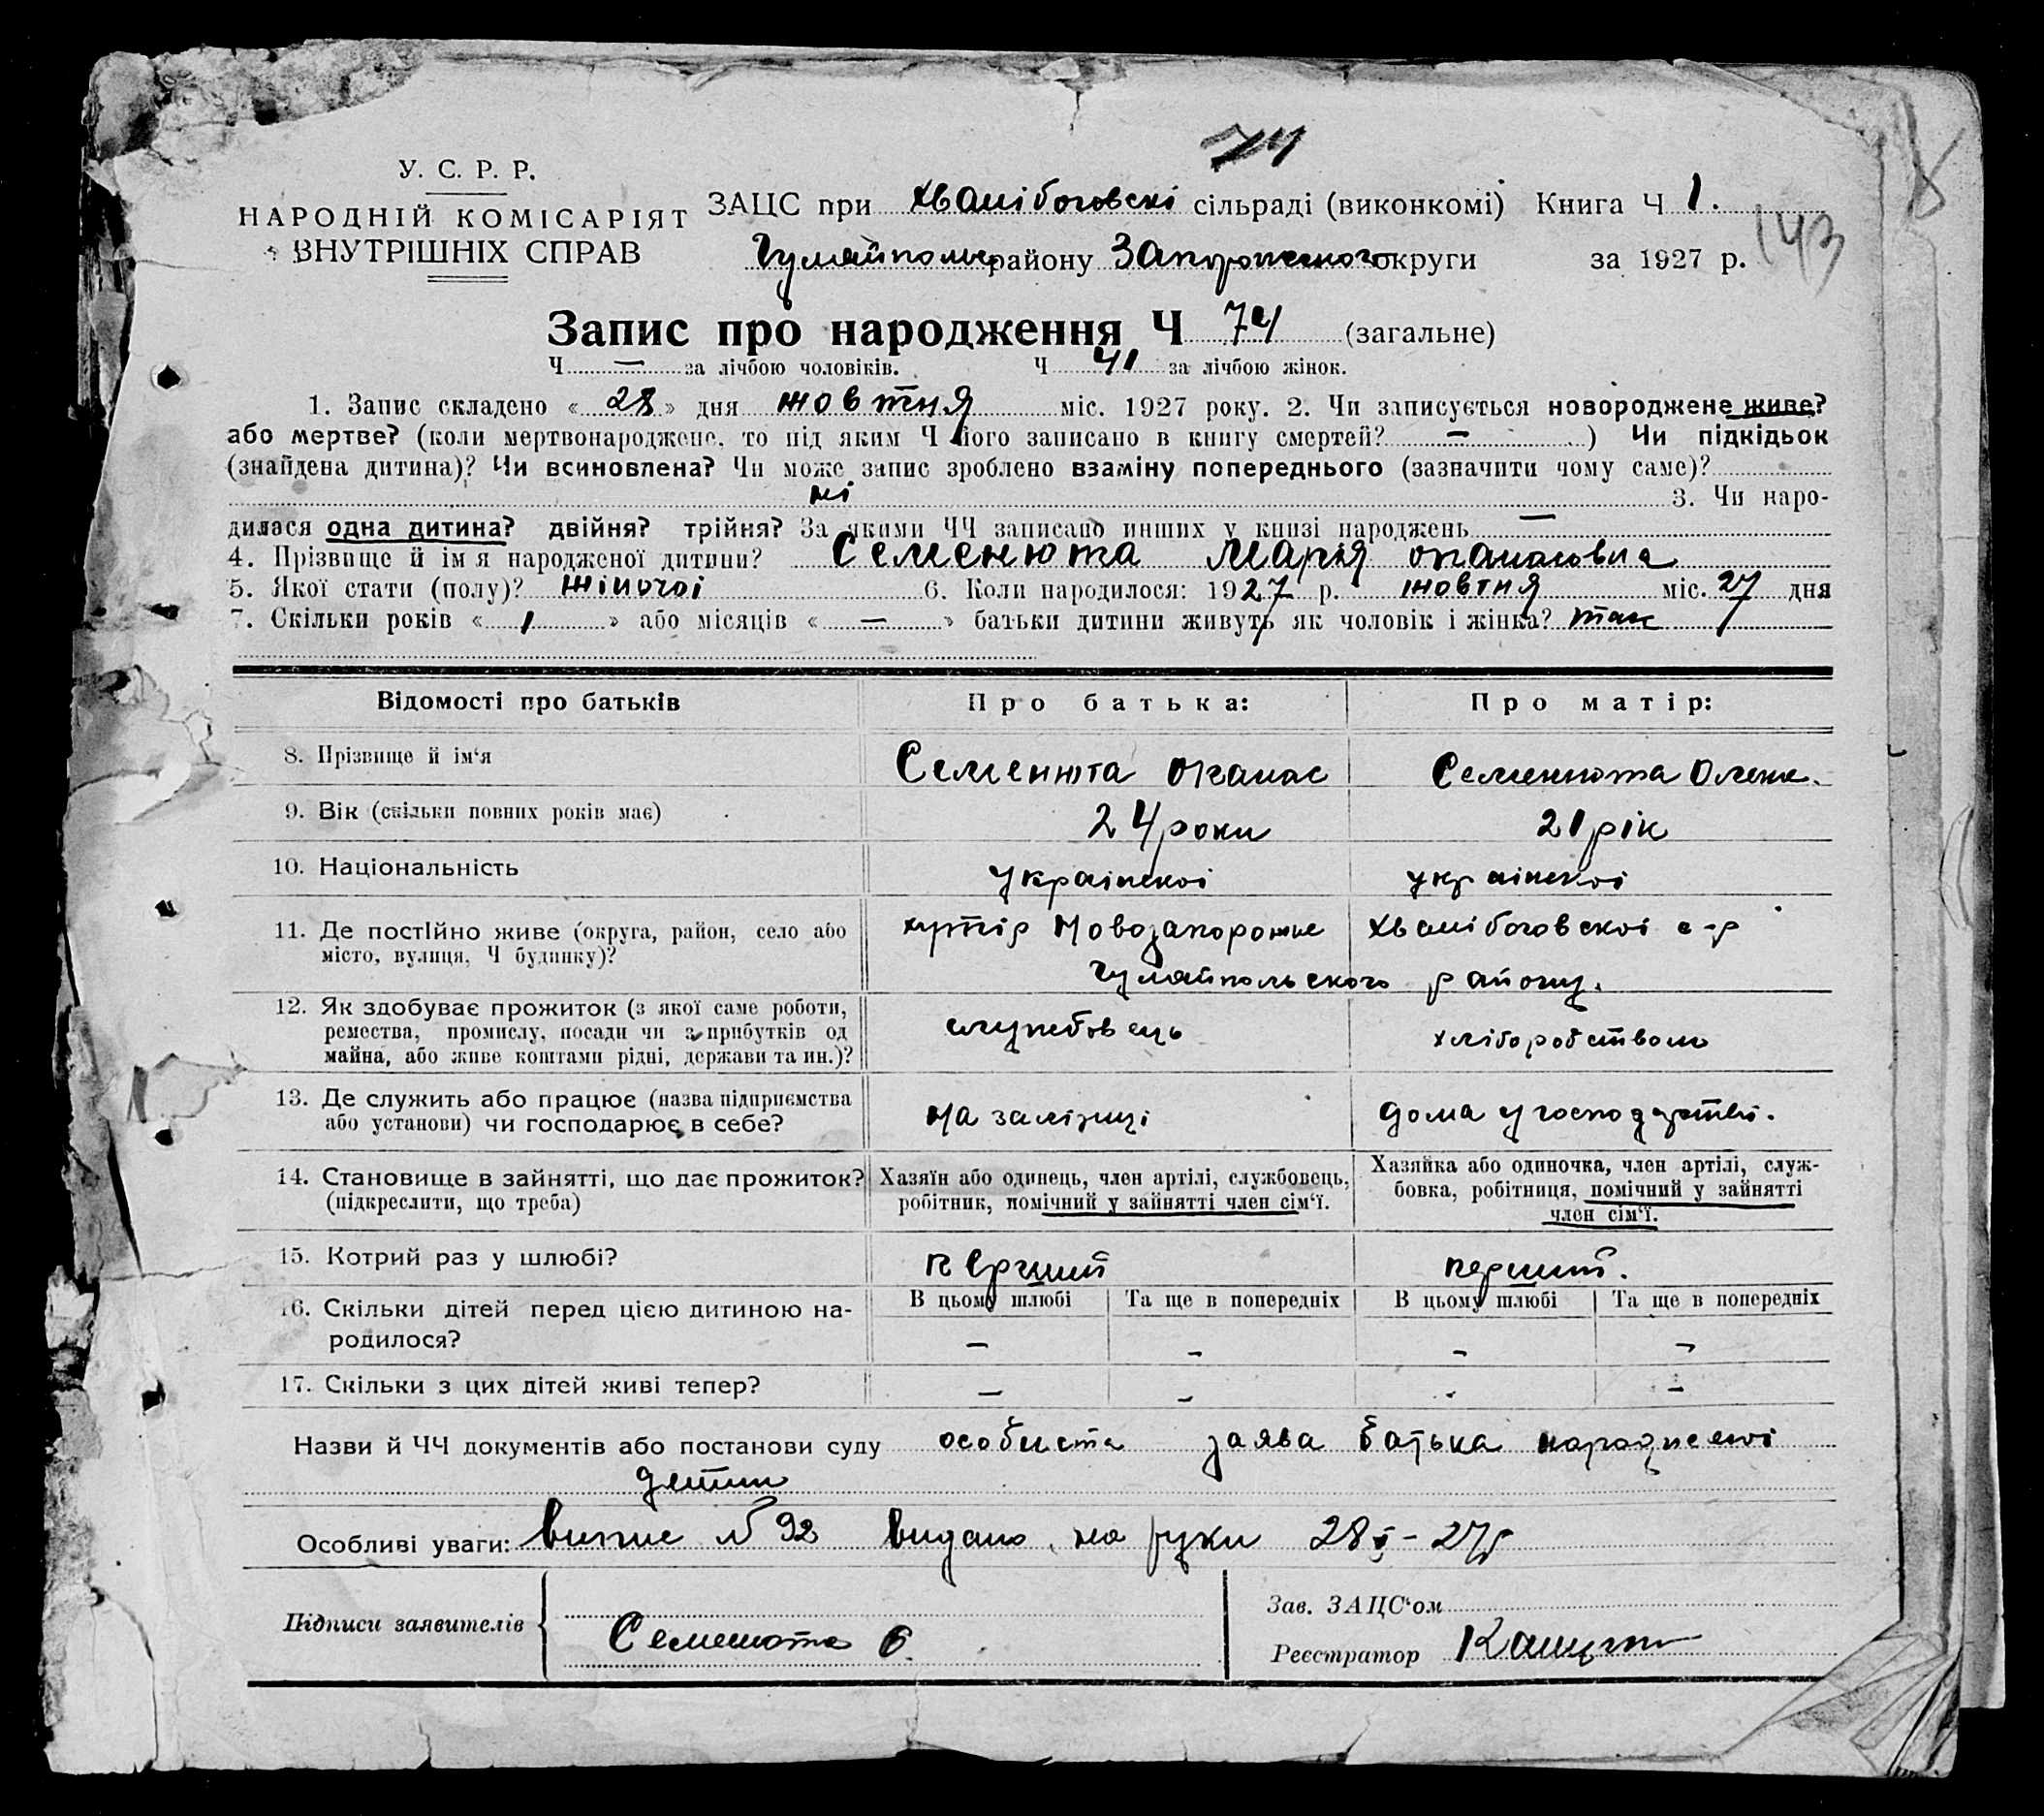 74
У. С. Р. Р.
НАРОДНІЙ КОМІСАРІЯТ
ВНУТРІШНІХ СПРАВ
ЗАЦС при Хвалібоговскі сільраді (виконкомі) Книга Ч 1.
Гуляйпольс району Запорожского округи за 1927 р.
143
Запис про народження Ч 74 (загальне)
Ч — за лічбою чоловіків. Ч 41 за лічбою жінок.
1. Запис складено « 28 » дня жовтня міс. 1927 року. 2. Чи записується новороджене живе?
або мертве? (коли мертвонароджене, то під яким Ч його записано в книгу смертей? — ) Чи підкідьок
(знайдена дитина)? Чи всиновлена? Чи може запис зроблено взаміну попереднього (зазначити чому саме)?
ні 3. Чи наро-
дилася одна дитина? двійня? трійня? За якими ЧЧ записано инших у книзі народжень —
4. Прізвище й ім'я народженої дитини? Семенюта Марія опанасовна
5. Якої стати (полу)? жіночоі 6. Коли народилося: 1927 р. жовтня міс. 27 дня
7. Скільки років « 1 » або місяців « — » батьки дитини живуть як чоловік і жінка? так
Відомості про батьків Про батька: Про матір:
8. Прізвище й ім'я Семенюта Опанас Семенюта Олена.
9. Вік (скільки повних років має) 24 роки 21 рік
10. Національність украінскоі украінскоі
11. Де постІйно живе (округа, район, село або хутір Новозапорожжє Хвалібоговскоі с-р
місто, вулиця, Ч будинку)? Гуляйпольского району.
12. Як здобуває прожиток (з якої саме роботи,
ремества, промислу, посади чи з прибутків од службовець хліборобством
майна, або живе коштами рідні, держави та ин.)?
13. Де служить або працює (назва підприємства на залізниці дома у господарстві.
або установи) чи господарює в себе?
14. Становище в зайнятті, що дає прожиток? Хазяїн або одинець, член артілі, службовець, Хазяйка або одиночка, член артілі, служ-
(підкреслити, що треба) робітник, помічний у зайнятті член сім'ї. бовка, робітниця, помічний у зайнятті
член сім'ї.
15. Котрий раз у шлюбі? первший перший.
16. Скільки дітей перед цією дитиною на- В цьому шлюбі Та ще в попередніх В цьому шлюбі Та ще в попередніх
родилося? — — — —
17. Скільки з цих дітей живі тепер? — — - —
Назви й ЧЧ документів або постанови суду особиста заява батька народженоі
дитини
Особливі уваги: Випис № 92 видано на руки 28 X - 27р
Підписи заявителів Семенюта Зав. ЗАЦС'ом
Реєстратор